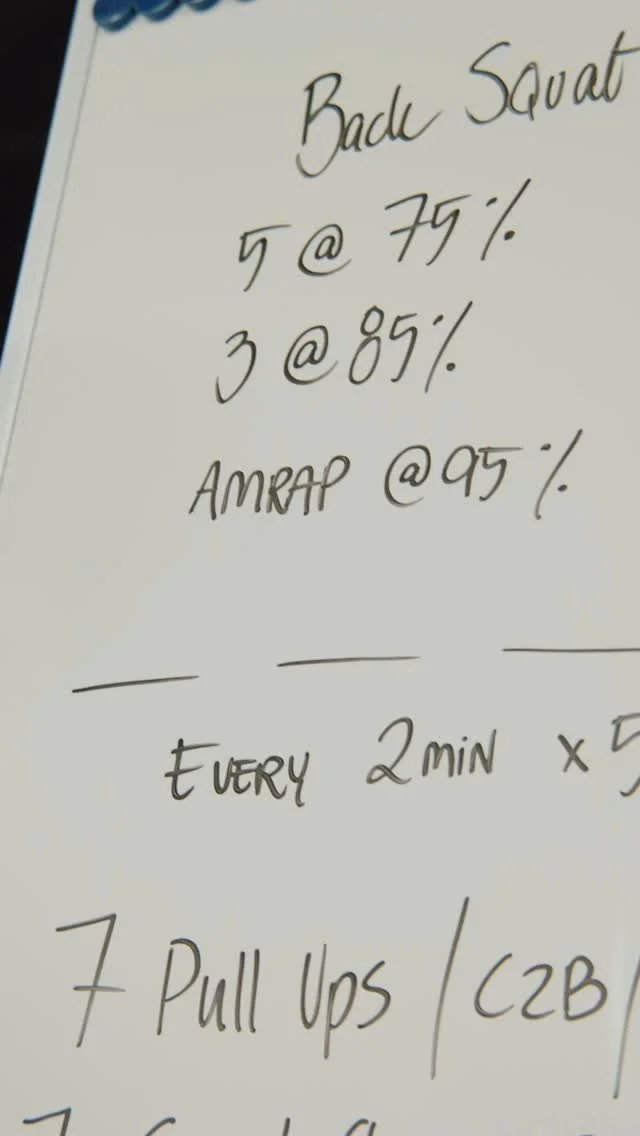 Back Squat
5 @ 75%
3 @ 85%
AMRAP @ 95%
EVERY 2 MIN x 5
7 Pull Ups / C2B /
7